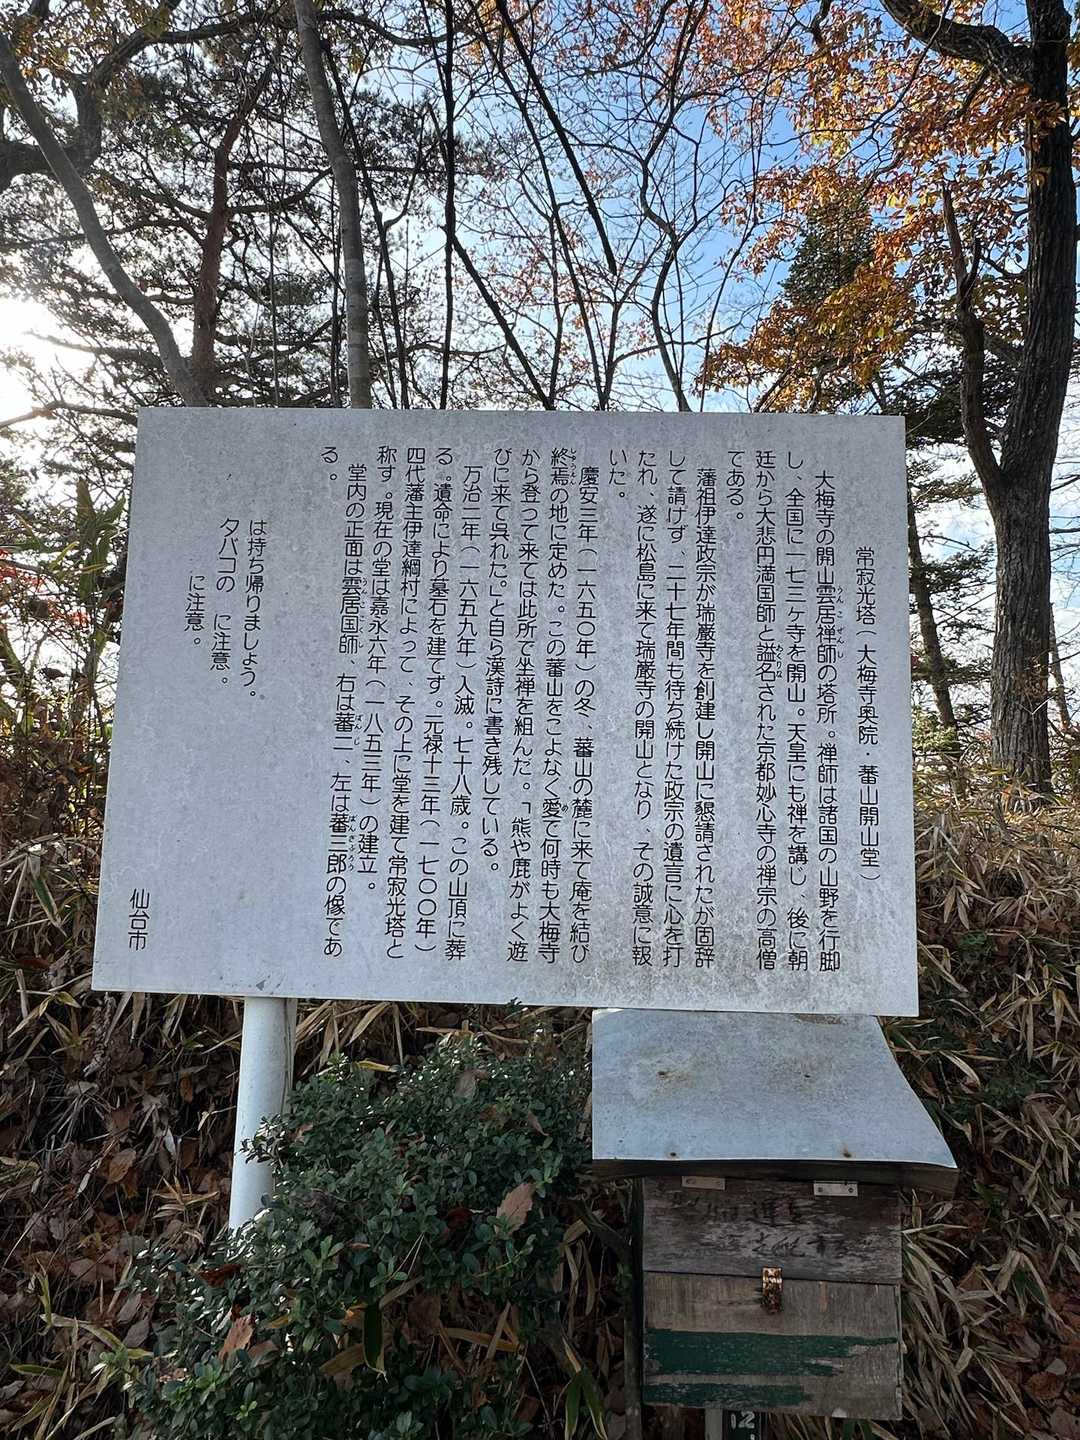 常寂光塔(大梅寺奥院・蕃山開山堂)
大梅寺の開山雲居禅師の塔所。禅師は諸国の山野を行脚
し、全国に一七三ヶ寺を開山。天皇にも禅を講じ、後に朝
廷から大悲円満国師と諡名された京都妙心寺の禅宗の高僧
である。
藩祖伊達政宗が瑞巌寺を創建し開山に懇請されたが固辞
して請けず、二十七年間も待ち続けた政宗の遺言に心を打
たれ、遂に松島に来て瑞巌寺の開山となり、その誠意に報
いた。
慶安三年(一六五〇年)の冬、蕃山の麓に来て庵を結び
終焉の地に定めた。この蕃山をこよなく愛で何時も大梅寺
から登って来ては此所で坐禅を組んだ。「熊や鹿がよく遊
びに来て呉れた。」と自ら漢詩に書き残している。
万治二年(一六五九年)入滅。七十八歳。この山頂に葬
る。遺命により墓石を建てず。元禄十三年(一七〇〇年)
四代藩主伊達綱村によって、その上に堂を建て常寂光塔と
称す。現在の堂は嘉永六年(一八五三年)の建立。
堂内の正面は雲居国師、右は蕃二、左は蕃三郎の像であ
る。
は持ち帰りましょう。
タバコの に注意。
に注意。
仙台市